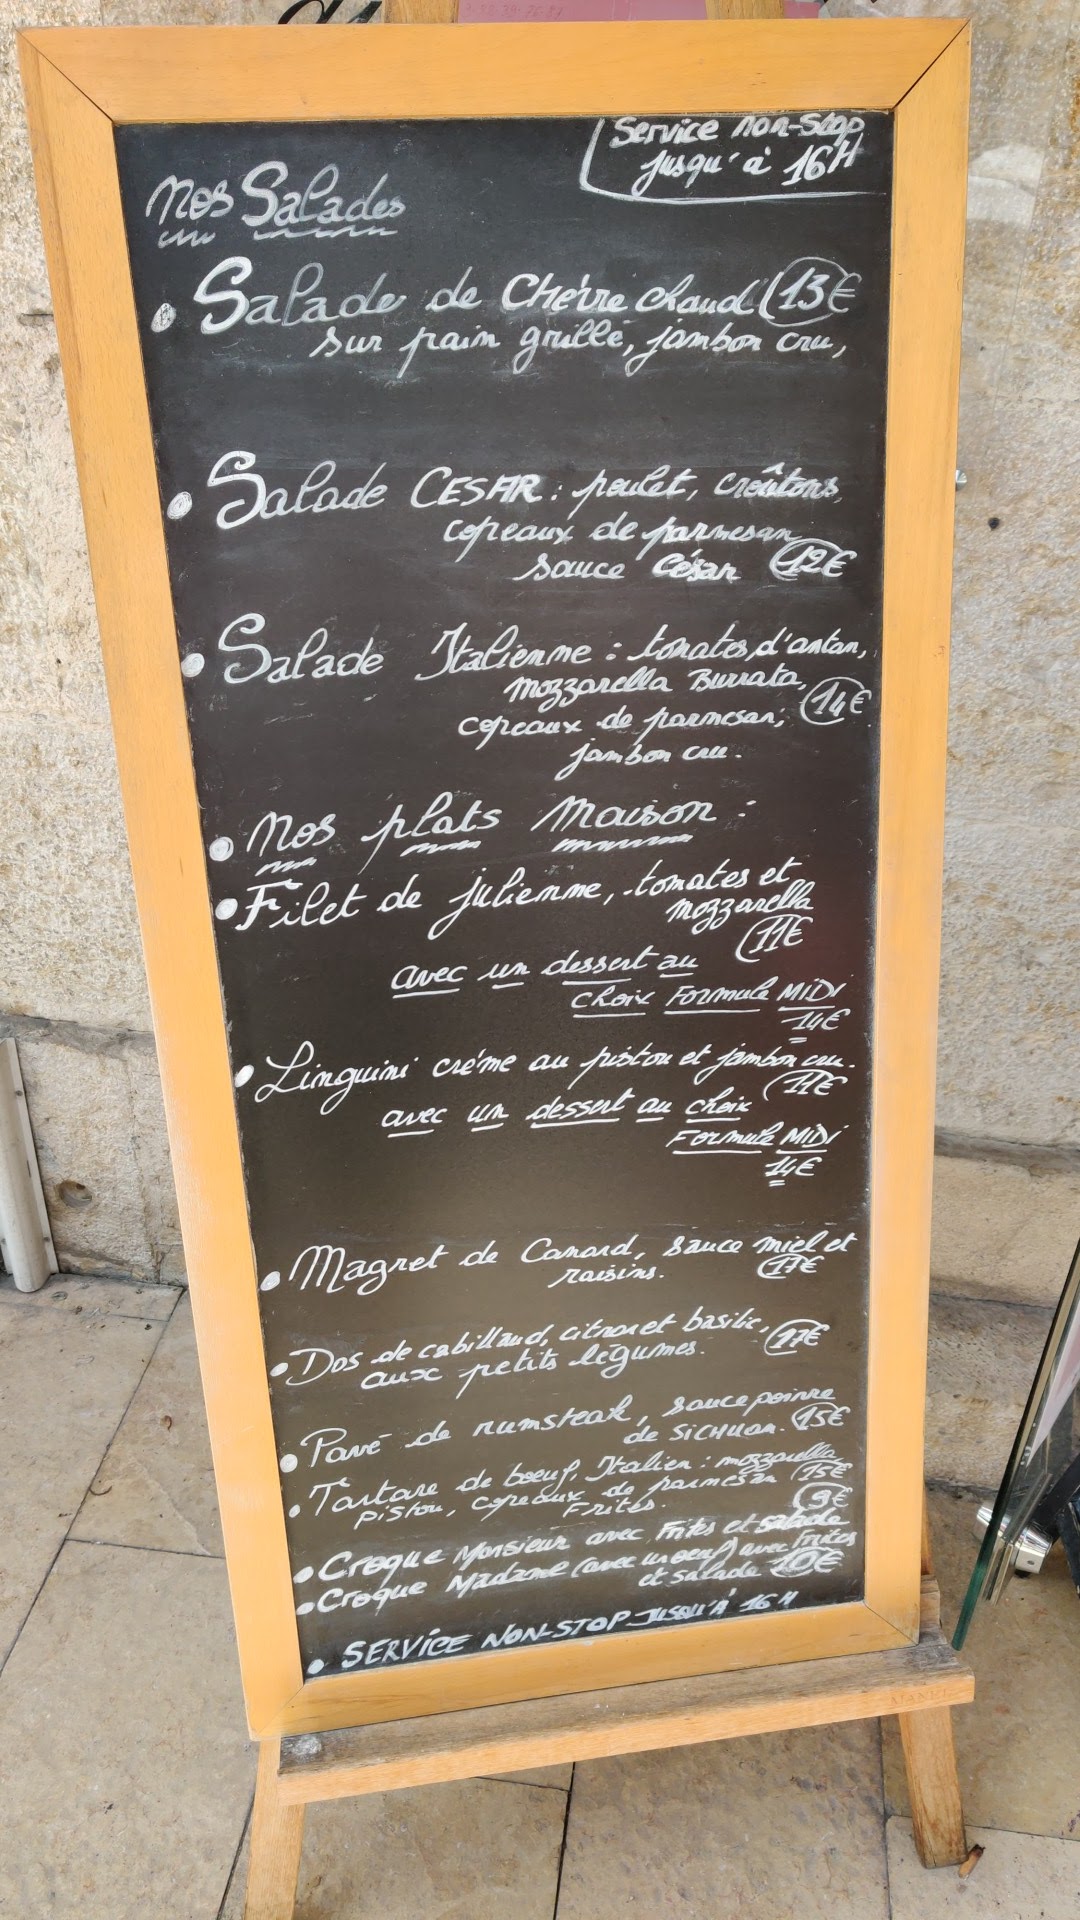 Service non-stop
jusqu'à 16H
Nos Salades
• Salade de Chèvre chaud 13€
sur pain grillé, jambon cru,
• Salade CESAR : poulet, croûtons,
copeaux de parmesan
sauce César 12€
• Salade Italienne : tomates d'antan,
mozzarella Burrata,
14€
copeaux de parmesan,
jambon cru.
• Nos plats Maison :
• Filet de julienne, tomates et
mozzarella
11€
avec un dessert au
choix Formule MiDi
14€
• Linguini crème au pistou et jambon cru.
11€
avec un dessert au choix
Formule MiDi
14€
• Magret de Canard, sauce miel et
raisins. 17€
• Dos de cabillaud, citron et basilic,
aux petits légumes. 17€
• Pavé de rumsteak, sauce poivre
de SICHUAN. 15€
• Tartare de boeuf, Italien : mozzarella
pistou, copeaux de parmesan 15€
Frites.
9€
• Croque Monsieur avec Frites et salade
• Croque Madame (avec un oeuf) avec Frites
et salade 10€
• SERVICE NON-STOP JUSQU'À 16H